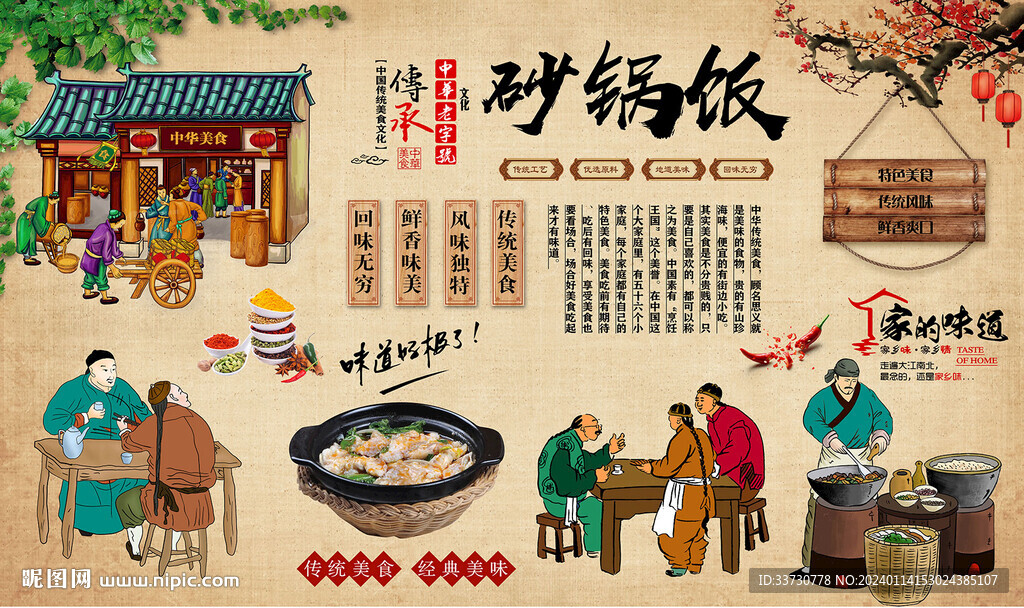 砂锅饭
中华老字號
文化
傳承
【中国传统美食文化】
中華美食
传统工艺
优选原料
地道美味
回味无穷
中华美食
回味无穷
鲜香味美
风味独特
传统美食
中华传统美食，顾名思义就
是美味的食物，贵的有山珍
海味，便宜的有街边小吃。
其实美食是不分贵贱的，只
要是自己喜欢的，都可以称
之为美食。中国素有“烹饪
王国”这个美誉。在中国这
个大家庭里，有五十六个小
家庭，每个家庭都有自己的
特色美食。美食吃前有期待
、吃后有回味，享受美食也
要看场合，场合好美食吃起
来才有味道。
特色美食
传统风味
鲜香爽口
家的味道
家乡味·家乡情
TASTE
OF HOME
走遍大江南北，
最念的，还是家乡味...
味道好极了！
传统美食
经典美味
昵图网 www.nipic.com
ID:33730778 NO:20240114153024385107